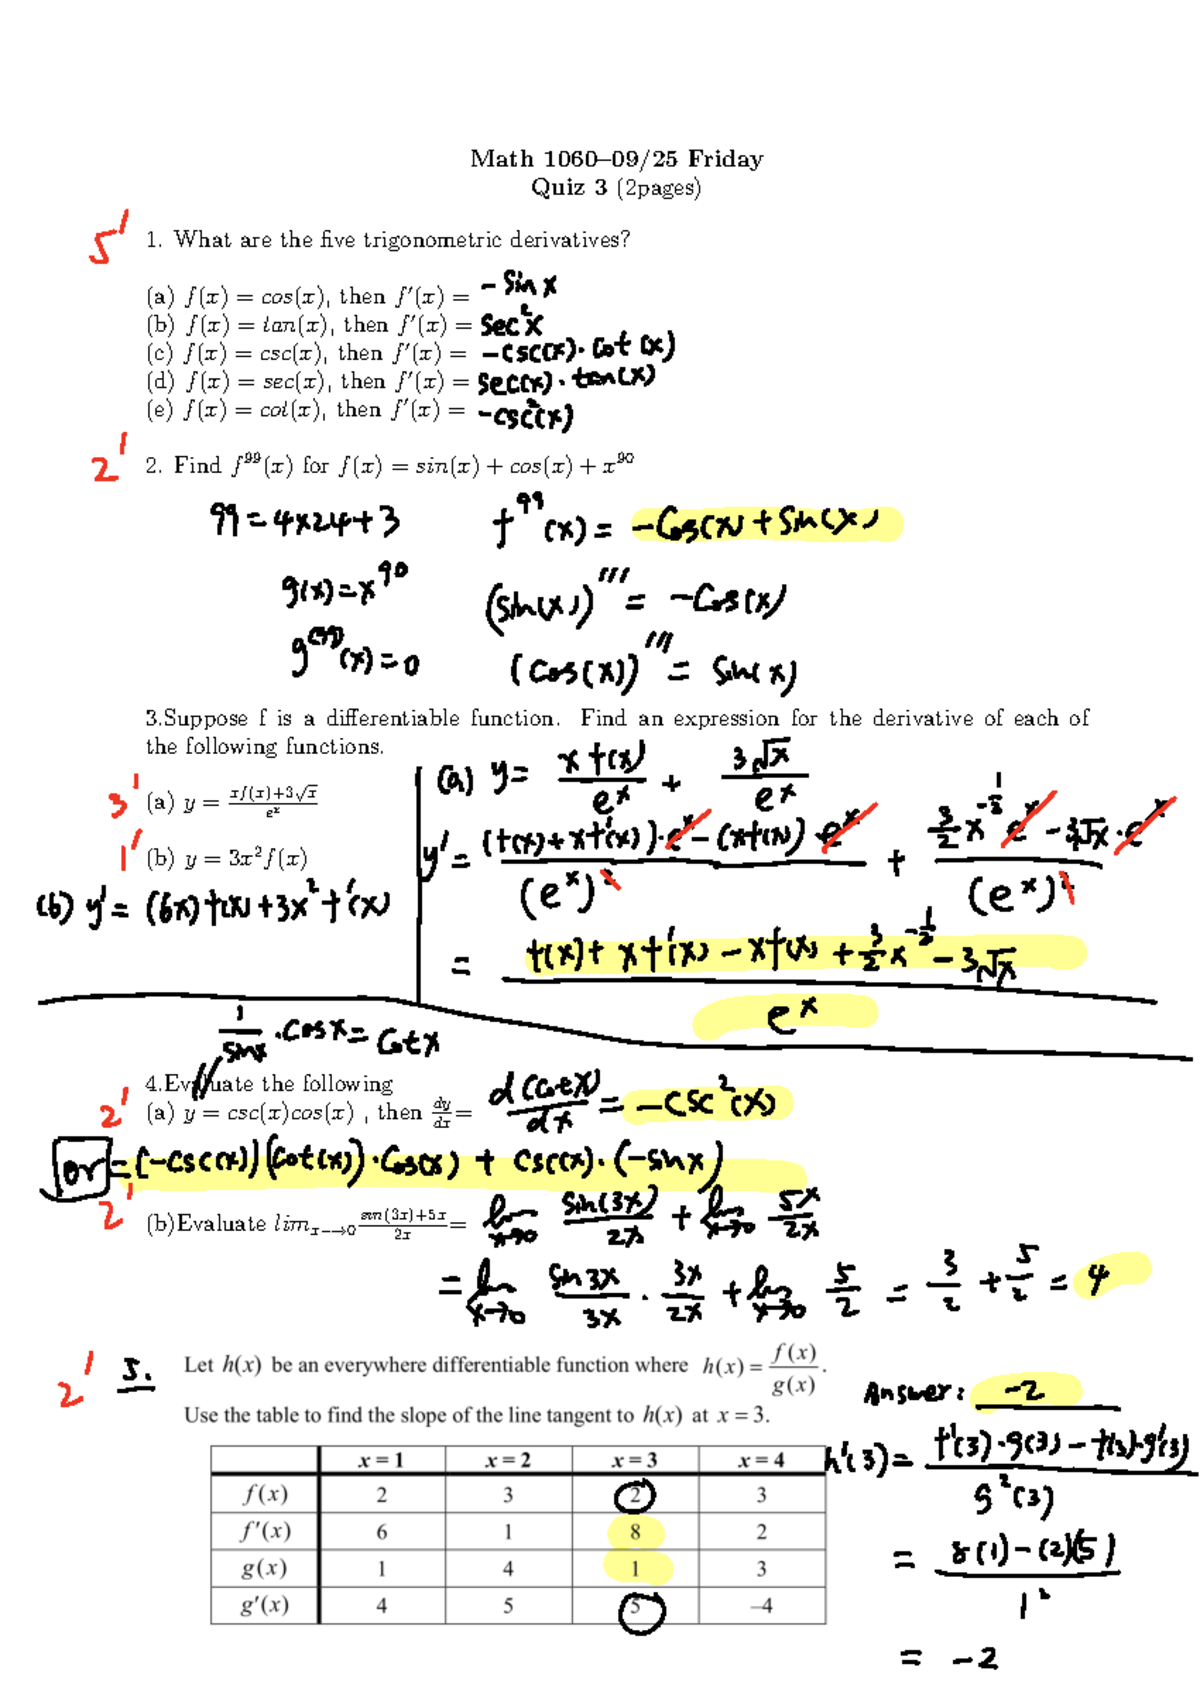 Math 1060–09/25 Friday
Quiz 3 (2pages)
5' 1. What are the five trigonometric derivatives?
(a) f(x) = cos(x), then f'(x) = -sin x
(b) f(x) = tan(x), then f'(x) = sec²x
(c) f(x) = csc(x), then f'(x) = -csc(x)·cot(x)
(d) f(x) = sec(x), then f'(x) = sec(x)·tan(x)
(e) f(x) = cot(x), then f'(x) = -csc²(x)
2' 2. Find f⁹⁹(x) for f(x) = sin(x) + cos(x) + x⁹⁰
99 = 4x24+3 f⁹⁹(x) = -cos(x) + sin(x)
g(x) = x⁹⁰ (sin(x))''' = -cos(x)
g⁽⁹⁹⁾(x) = 0 (cos(x))''' = sin(x)
3.Suppose f is a differentiable function. Find an expression for the derivative of each of
the following functions.
3' (a) y = (xf(x)+3√x)/eˣ
1' (b) y = 3x²f(x)
(b) y' = (6x)f(x) + 3x²f'(x)
(a) y = xf(x)/eˣ + 3√x/eˣ
y' = ((f(x)+xf'(x))·eˣ - (xf(x))·eˣ)/(eˣ)² + (3/2 x^(-1/2) eˣ - 3√x·eˣ)/(eˣ)²
= (f(x) + xf'(x) - xf(x) + 3/2 x^(-1/2) - 3√x)/eˣ
1/sinx · cosx = cotx
4.Evaluate the following
2' (a) y = csc(x)cos(x) , then dy/dx = d(cotx)/dx = -csc²(x)
or = (-csc(x))(cot(x))·cos(x) + csc(x)·(-sinx)
2' (b)Evaluate lim x→0 (sin(3x)+5x)/2x = lim x→0 sin(3x)/2x + lim x→0 5x/2x
= lim x→0 sin3x/3x · 3x/2x + lim x→0 5/2 = 3/2 + 5/2 = 4
2' 5. Let h(x) be an everywhere differentiable function where h(x) = f(x)/g(x).
Use the table to find the slope of the line tangent to h(x) at x = 3.
Answer: -2
x = 1 x = 2 x = 3 x = 4
f(x) 2 3 2 3
f'(x) 6 1 8 2
g(x) 1 4 1 3
g'(x) 4 5 5 –4
h'(3) = (f'(3)·g(3) - f(3)·g'(3))/g²(3)
= (8(1) - (2)(5))/1²
= -2